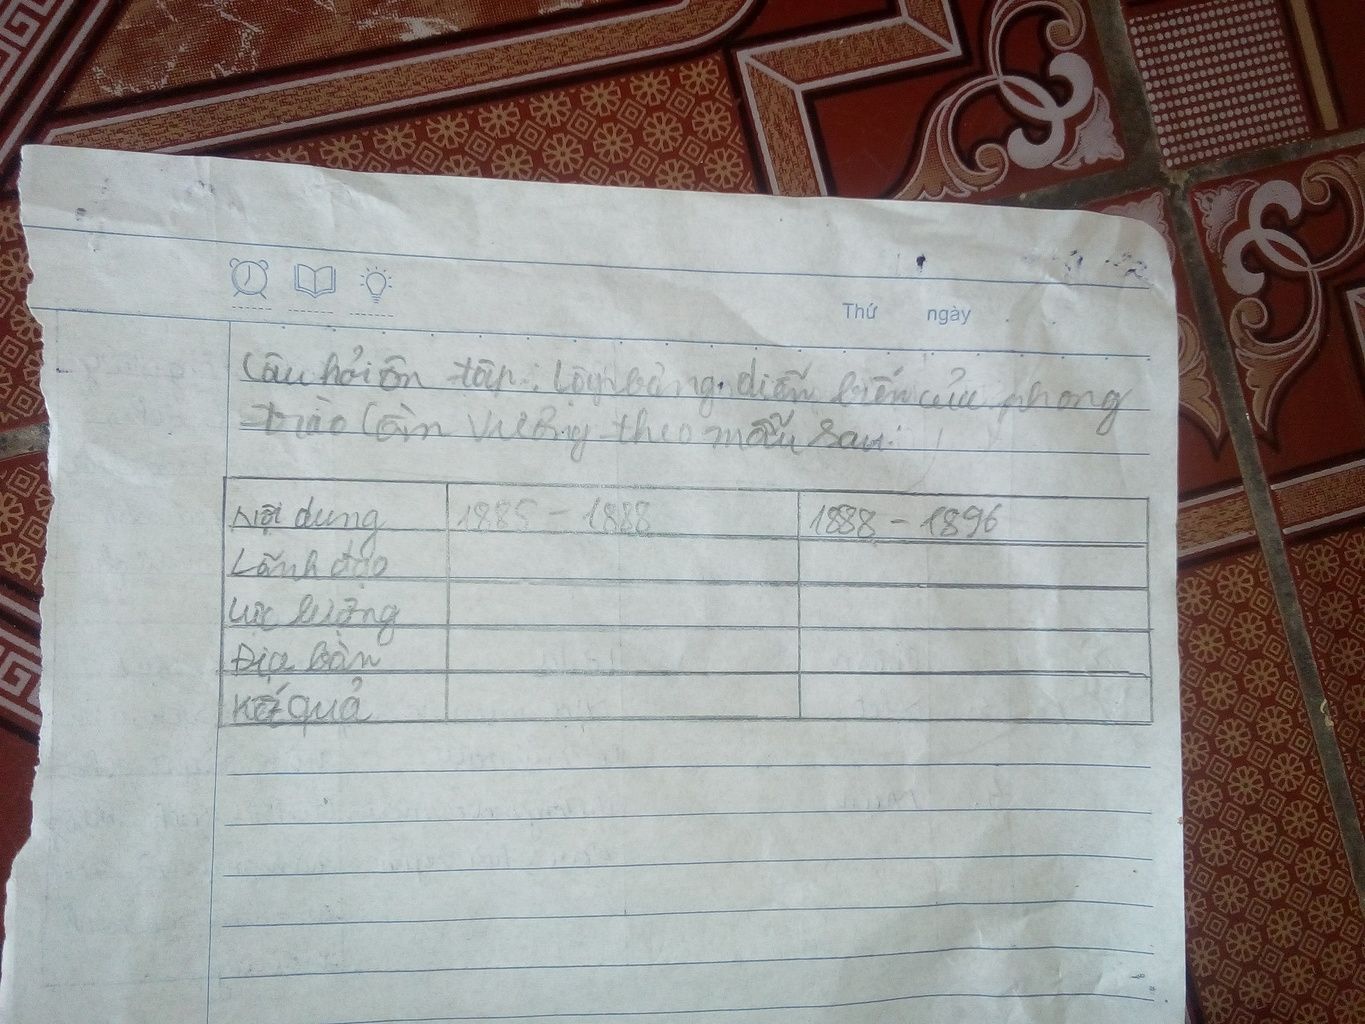 Thứ ngày
Câu hỏi ôn tập: Lập bảng diễn biến của phong
trào Cần Vương theo mẫu sau:
Nội dung 1885 - 1888 1888 - 1896
Lãnh đạo
Lực lượng
Địa bàn
Kết quả